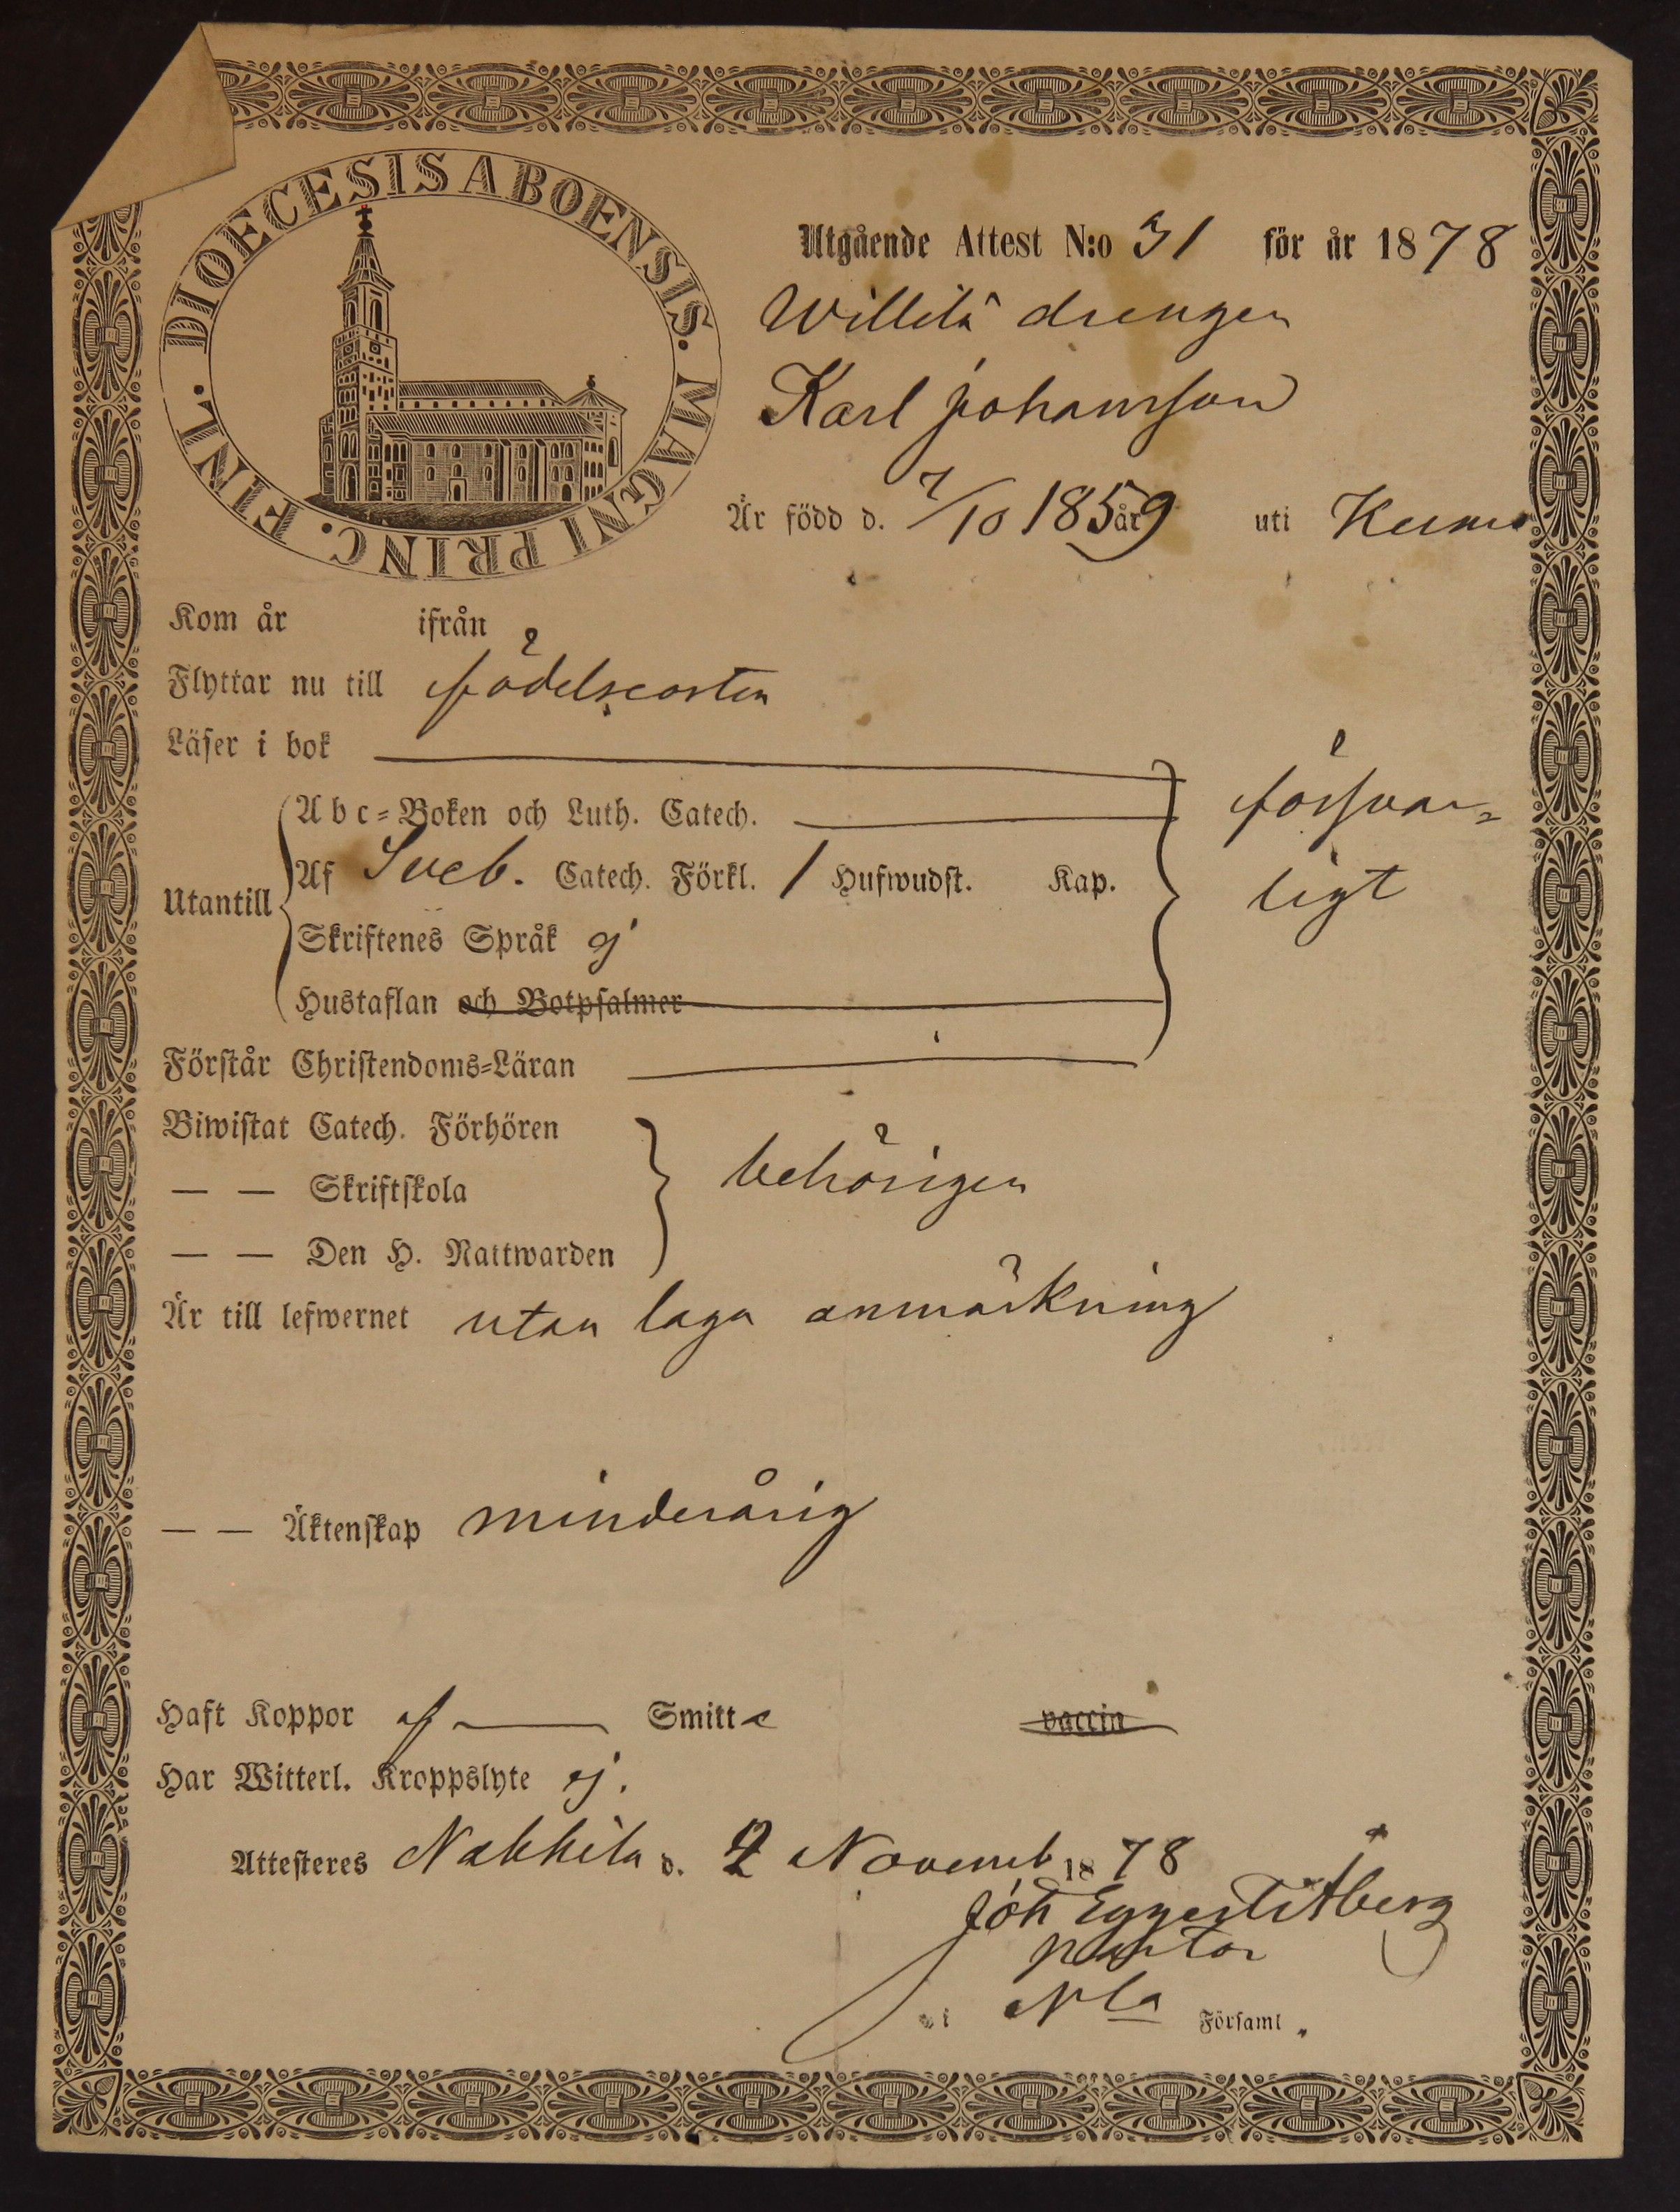 DIOECESIS ABOENSIS. MAGNI PRINC. FINL.
Utgående Attest N:o 31 för år 1878
Willilä drengen
Karl Johansson
Är född d. 7/10 1859 år uti Kumo
Kom år ifrån
Flyttar nu till födelseorten
Läser i bok
Abc=Boken och Luth. Catech.
försvar=
Utantill
Af Sveb. Catech. Förkl. 1 Hufwudst. Kap.
ligt
Skriftenes Språk ej
Hustaflan och Botpsalmer
Förstår Christendoms=Läran
Biwistat Catech. Förhören
— — Skriftskola
behörigen
— — Den H. Nattwarden
Är till lefwernet utan laga anmärkning
— — Äktenskap minderårig
Haft Koppor Smitt vaccin
Har Witterl. Kroppslyte ej.
Attesteres Nakkila d. 2 Novemb 1878
Joh Eggert Titberg
pastor
i Nla Församl.